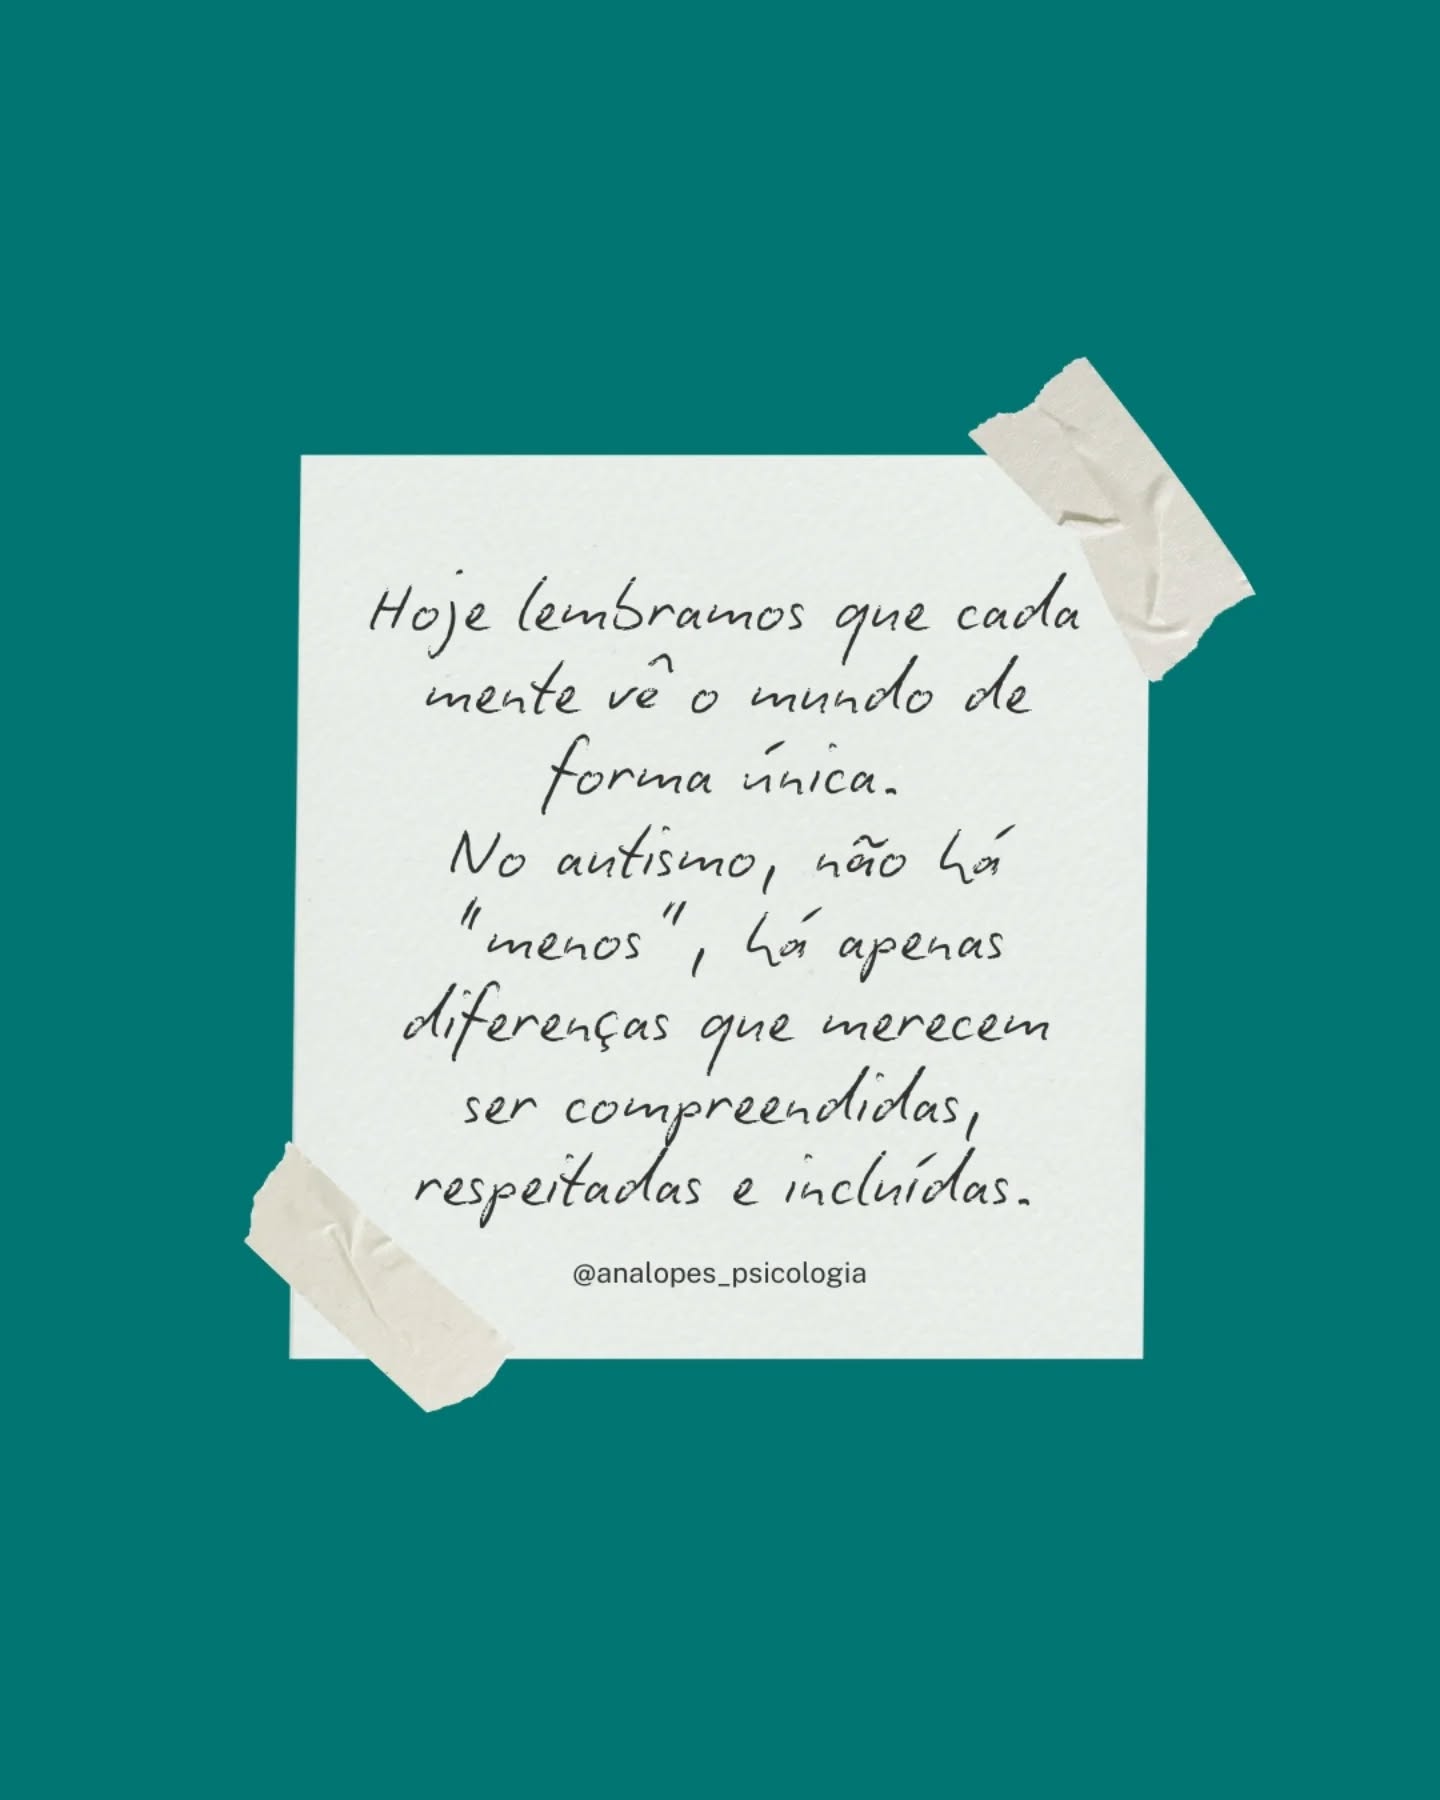 Hoje lembramos que cada
mente vê o mundo de
forma única.
No autismo, não há
"menos", há apenas
diferenças que merecem
ser compreendidas,
respeitadas e incluídas.
@analopes_psicologia